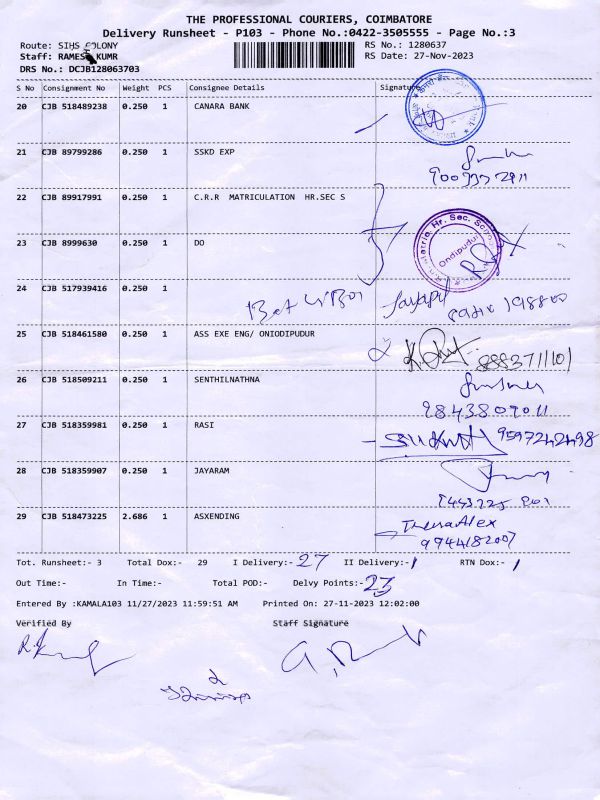 THE PROFESSIONAL COURIERS, COIMBATORE
Delivery Runsheet - P103 - Phone No.:0422-3505555 - Page No.:3
Route: SIHS COLONY
RS No.: 1280637
Staff: RAMESH KUMR
RS Date: 27-Nov-2023
DRS No.: DCJB128063703
S No Consignment No Weight PCS Consignee Details Signature
20 CJB 518489238 0.250 1 CANARA BANK
21 CJB 89799286 0.250 1 SSKD EXP
22 CJB 89917991 0.250 1 C.R.R MATRICULATION HR.SEC S
23 CJB 8999630 0.250 1 DO
Matric. Hr. Sec.
Ondipudur
24 CJB 517939416 0.250 1
Jayapal
25 CJB 518461580 0.250 1 ASS EXE ENG/ ONIODIPUDUR
8883711101
26 CJB 518509211 0.250 1 SENTHILNATHNA
9843809011
27 CJB 518359981 0.250 1 RASI
9597242498
28 CJB 518359907 0.250 1 JAYARAM
29 CJB 518473225 2.686 1 ASXENDING
Alex
9944182007
Tot. Runsheet:- 3 Total Dox:- 29 I Delivery:- 27 II Delivery:- 1 RTN Dox:- 1
Out Time:- In Time:- Total POD:- Delvy Points:- 23
Entered By :KAMALA103 11/27/2023 11:59:51 AM Printed On: 27-11-2023 12:02:00
Verified By Staff Signature